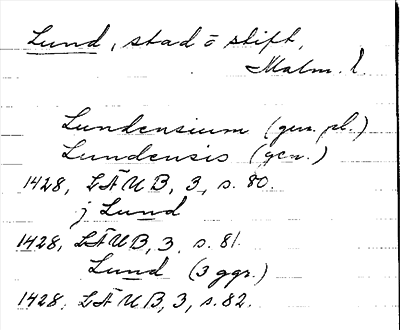 Lund, stad o stift,
Malm. l.
Lundensium (gen. pl.)
Lundensis (gen.)
1428, LÄUB, 3, s. 80.
j Lund
1428, LÄUB, 3, s. 81.
Lund (3 ggr.)
1428, LÄUB, 3, s. 82.